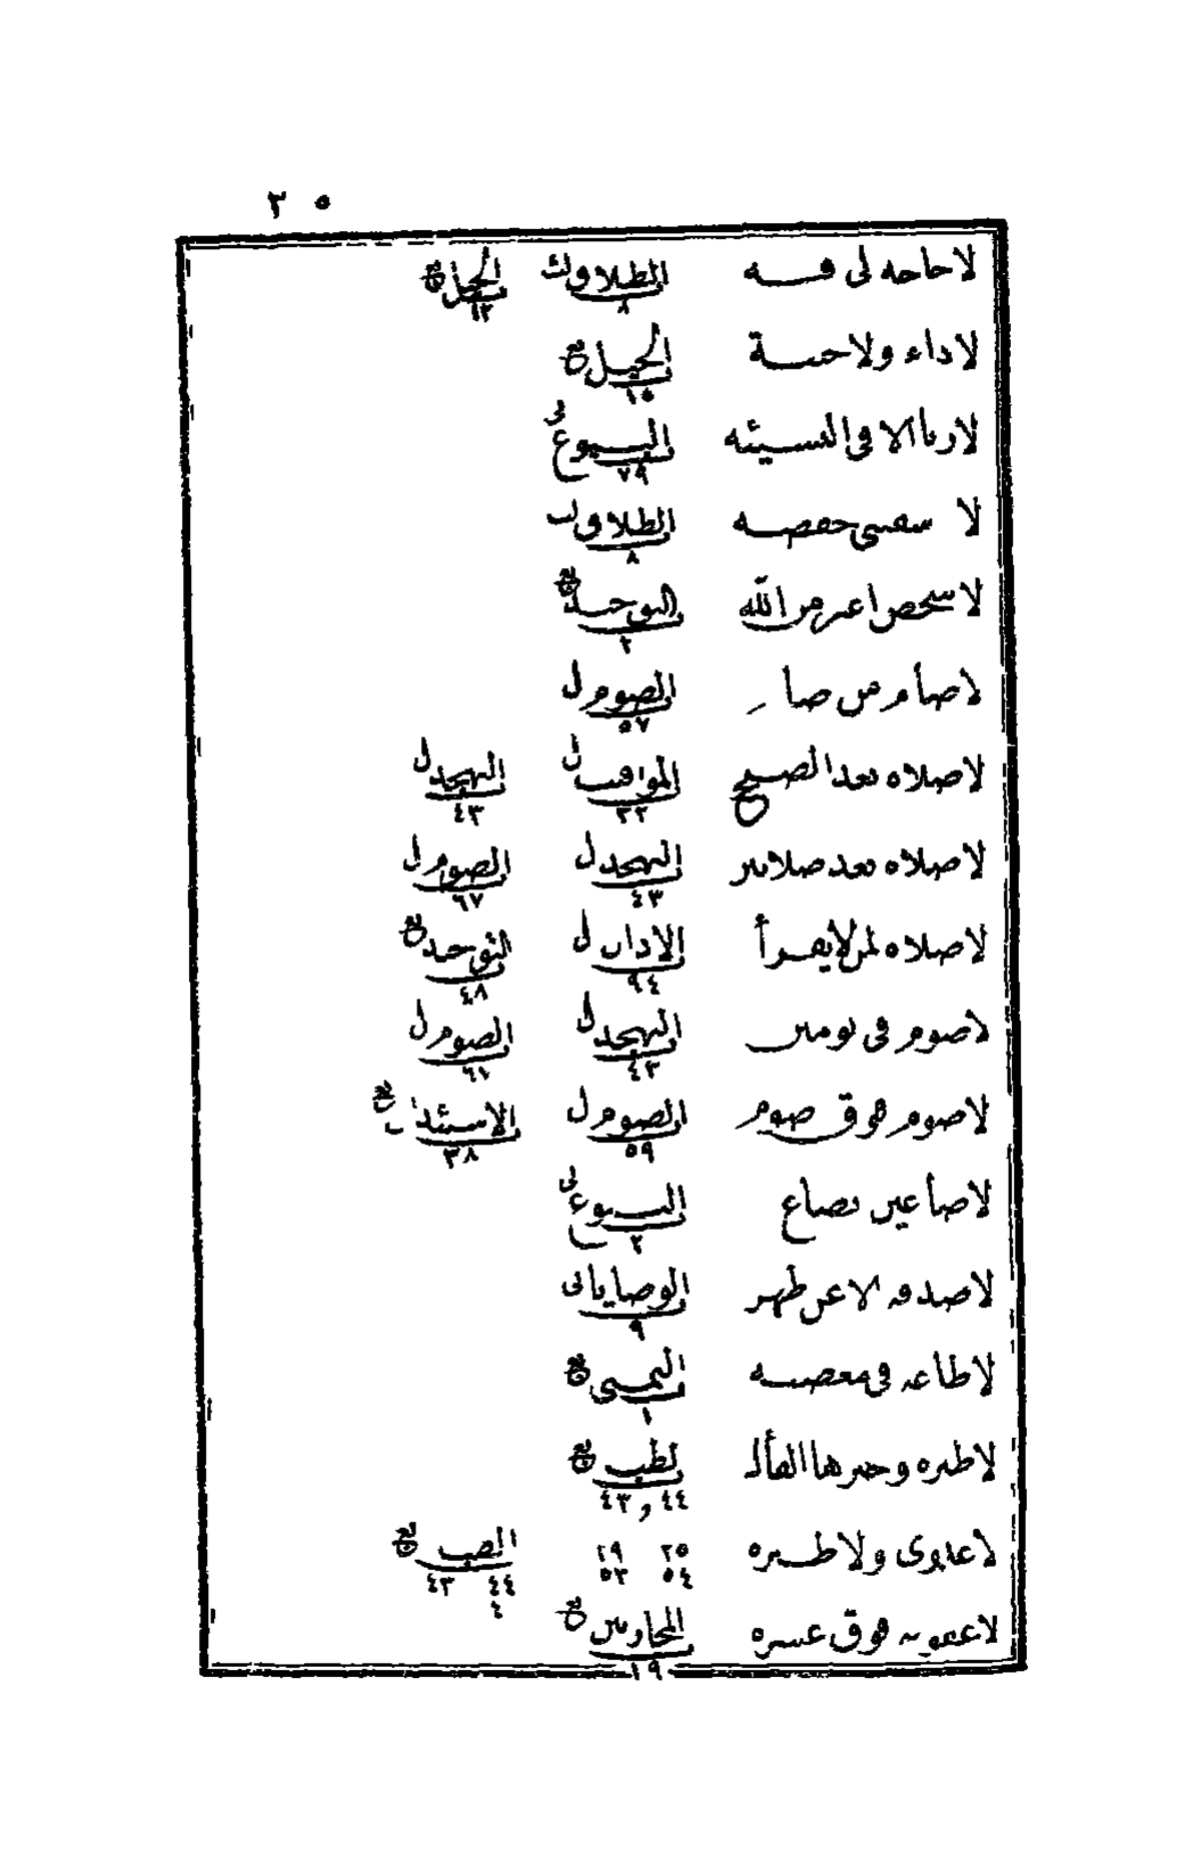 ٢٠٥
لا حاجه لى فيه الطلاق ٨ الحيل ١٢
لا داء ولا خبثة الحيل ١٥
لا ربا الا فى النسيئه البيوع ٧٩
لا سقى حفصه الطلاق ٨
لا شخص اغير من الله التوحيد ٢
لا صام من صا الصوم ل ٥٧
لا صلاه بعد الصبح المواقيت ل ٣٢ التهجد ل ٤٣
لا صلاه بعد صلاتين التهجد ل ٤٣ الصوم ل ٦٧
لا صلاه لمن لا يقرأ الاذان ل ٩٤ التوحيد ٤٨
لا صوم فى يومين التهجد ل ٤٣ الصوم ل ٦٧
لا صوم فوق صوم الصوم ل ٥٩ الاستئذان ٣٨
لا صاعين بصاع البيوع ٢
لا صدقه الا عن ظهر الوصايا ٩
لا طاعه فى معصيه التمنى ١
لا طيره وخيرها الفأل لطب ٤٣ و ٤٤
لا عدوى ولا طيره ٢٥ ١٩ ٥٤ ٥٣ الطب ٤٤ ٤٣ ٤
لا عقوبه فوق عشره المحاربين ١٩